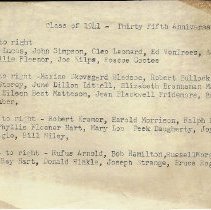 Class of 1941 - Thirty Fifth Anniversa
to right
Lucus, John Simpson, Cleo Leonard, Ed VonTrees, A
lie Fleenor, Joe Kilps, Roscoe Cootes
to right - Maxine Skovsgard Bledsoe, Robert Bullock
Storey, June Dillon Littell, Elizabeth Brannaman M
Eileen Best Matteson, Jean Blackwell Fridemore, R
ber.
to right - Robert Kramer, Harold Morrison, Ralph
Phyllis Fleenor Hart, Mary Lou Peek Daugherty, Jo
gle, Bill Miley,
to right - Rufus Arnold, Bob Hamilton, Russell
Ray Hart, Donald Hinkle, Joseph Strange, Bruce